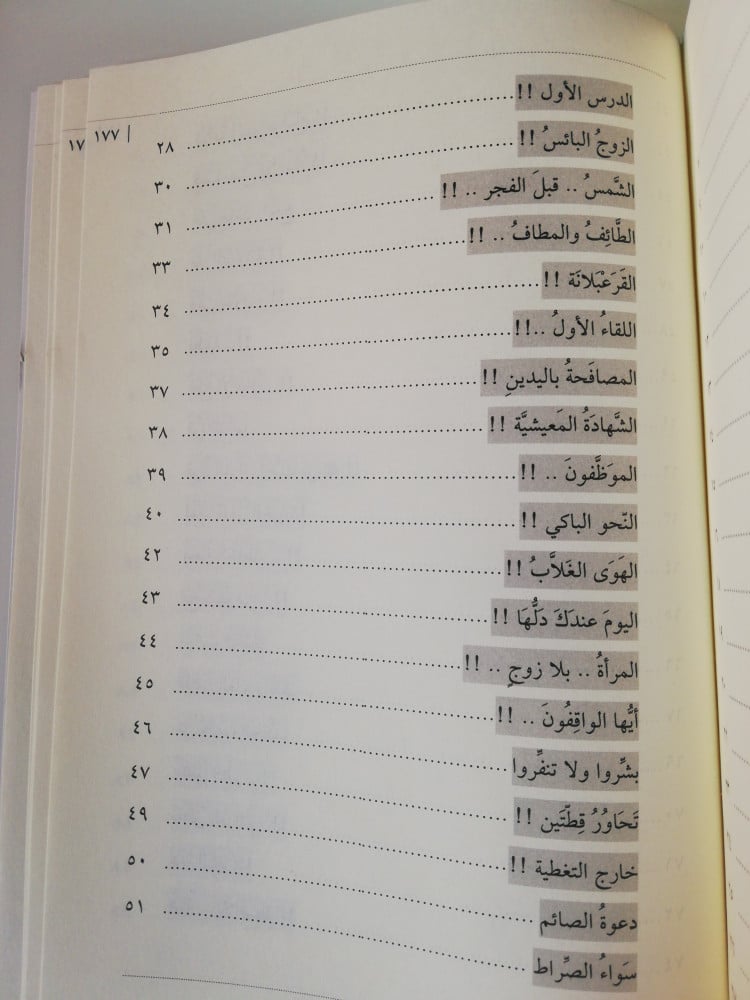 | ١٧٧
١٧
الدرس الأول !! ........ ٢٨
الزوجُ البائسُ !! ........ ٣٠
الشَّمسُ .. قبلَ الفجر .. !! ........ ٣١
الطَّائِفُ والمطافُ .. !! ........ ٣٣
القَرَعْبَلانَة !! ........ ٣٤
اللقاءُ الأولُ ..!! ........ ٣٥
المصافَحةُ باليدينِ !! ........ ٣٧
الشَّهادَةُ المَعيشيَّة !! ........ ٣٨
الموَظَّفونَ .. !! ........ ٣٩
النّحو الباكي !! ........ ٤٠
الهَوَى الغَلاَّبُ !! ........ ٤٢
اليومَ عندَكَ دَلُّهَا !! ........ ٤٣
المرأةُ .. بلا زوجٍ .. !! ........ ٤٤
أيُّها الواقِفُونَ .. !! ........ ٤٥
بشِّروا ولا تنفِّروا ........ ٤٦
تَحَاوُرُ قِطّتَين !! ........ ٤٧
خارج التغطية !! ........ ٤٩
دعوةُ الصائم ........ ٥٠
سَواءُ الصِّراط ........ ٥١